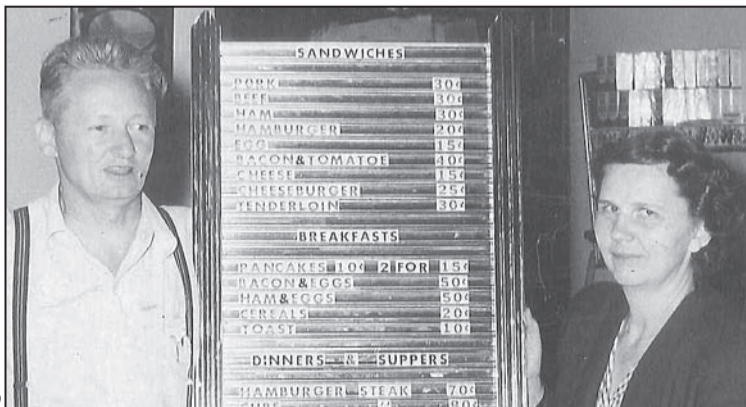 SANDWICHES
PORK 30¢
BEEF 30¢
HAM 30¢
HAMBURGER 20¢
EGG 15¢
BACON&TOMATOE 40¢
CHEESE 15¢
CHEESEBURGER 25¢
TENDERLOIN 30¢
BREAKFASTS
PANCAKES 10¢ 2 FOR 15¢
BACON&EGGS 50¢
HAM&EGGS 50¢
CEREALS 20¢
TOAST 10¢
DINNERS & SUPPERS
HAMBURGER STEAK 70¢
CUBE " 80¢